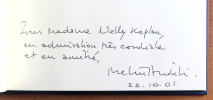 Pour Madame Nelly Kaplan,
en admiration très cordiale
et en amitié,
22.10.01.